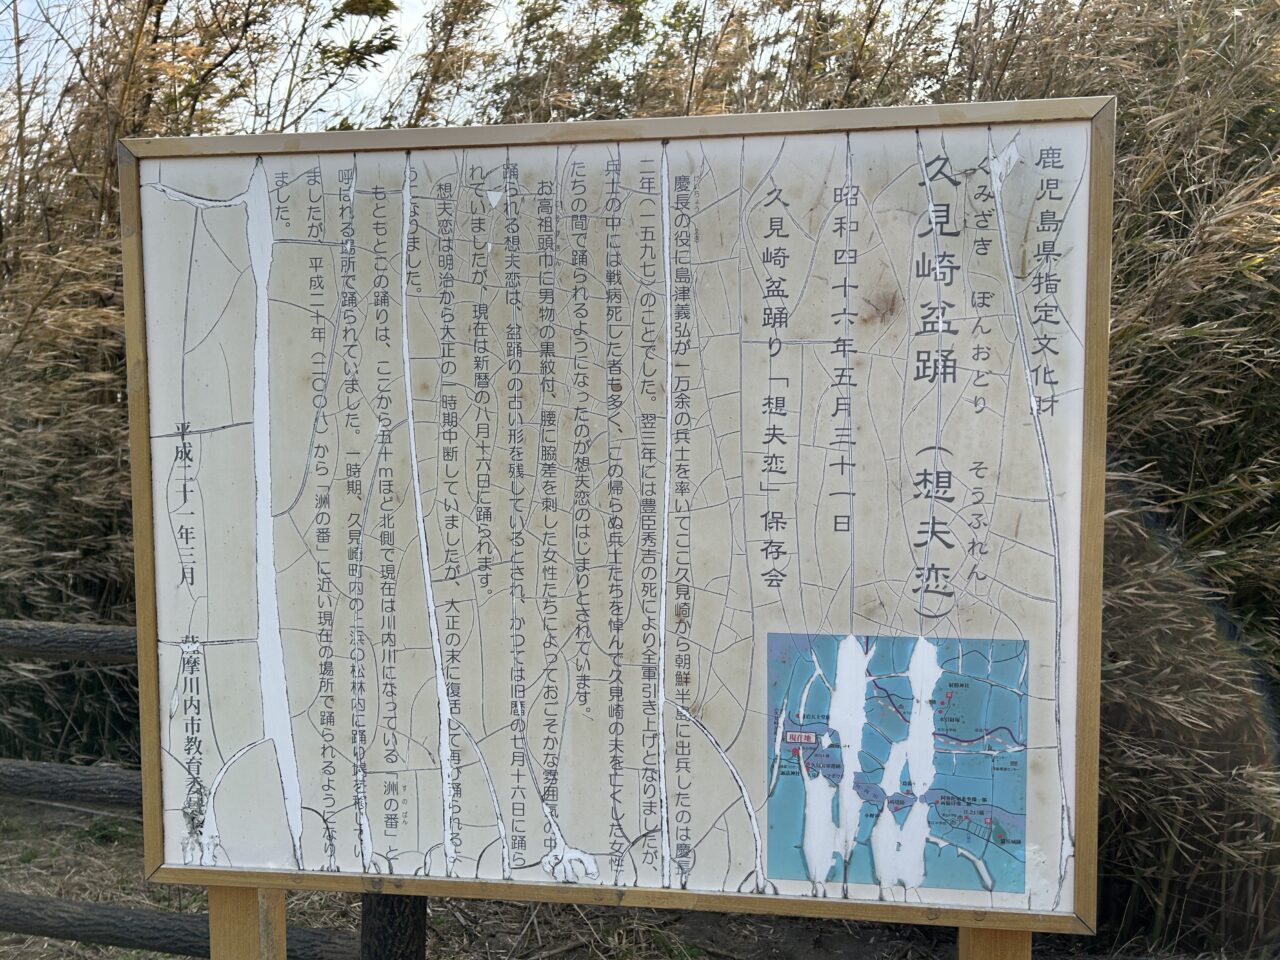 鹿児島県指定文化財
くみざき ぼんおどり そうふれん
久見崎盆踊(想夫恋)
昭和四十六年五月三十一日
久見崎盆踊り「想夫恋」保存会
慶長の役に島津義弘が一万余の兵士を率いてここ久見崎から朝鮮半島に出兵したのは慶長
二年(一五九七)のことでした。翌三年には豊臣秀吉の死により全軍引き上げとなりましたが、
兵士の中には戦病死した者も多く、この帰らぬ兵士たちを悼んで久見崎の夫を亡くした女性
たちの間で踊られるようになったのが想夫恋のはじまりとされています。
お高祖頭巾に男物の黒紋付、腰に脇差を刺した女性たちによっておごそかな雰囲気の中
踊られる想夫恋は、盆踊りの古い形を残しているとされ、かつては旧暦の七月十六日に踊ら
れていましたが、現在は新暦の八月十六日に踊られます。
想夫恋は明治から大正の一時期中断していましたが、大正の末に復活して再び踊られるよ
うになりました。
もともとこの踊りは、ここから五十mほど北側で現在は川内川になっている「洲の番」と
すのばん
呼ばれる場所で踊られていました。一時期、久見崎町内の上浜の松林内に踊り場を移してい
ましたが、平成二十年(二〇〇八)から「洲の番」に近い現在の場所で踊られるようになり
ました。
平成二十一年三月 薩摩川内市教育委員会
現在地